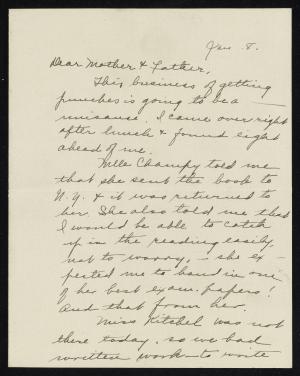 Jan 8.
Dear Mother & Father,
This business of getting
punches is going to be a
nuisance. I came over right
after lunch & found eight
ahead of me.
Mlle Champy told me
that she sent the book to
N.Y. & it was returned to
her. She also told me that
I would be able to catch
up in the reading easily,
not to worry, - she ex-
pected me to hand in one
of her best exam. papers!
And that from her.
Miss Kitchel was not
there today, so we had
written work - to write